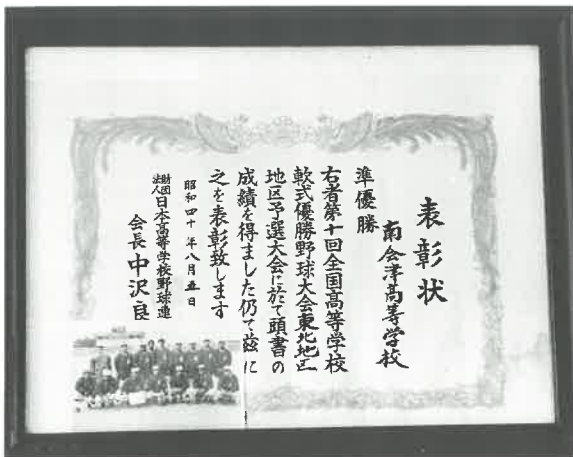 表彰状
南会津高等学校
準優勝
右者第十回全国高等学校
軟式優勝野球大会東北地区
地区予選大会に於て頭書の
成績を得ました仍て茲に
之を表彰致します
昭和四十年八月五日
財団法人日本高等学校野球連
会長中沢良